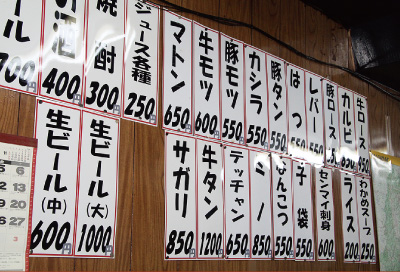 ール
700
お酒
400円
焼酎
300円
ジュース各種
250円
マトン
650円
牛モツ
600円
豚モツ
550円
カシラ
550
豚タン
550
はつ
550
レバー
550
豚ロース
カルビ
牛ロース
生ビール(中)
600円
生ビール(大)
1000円
サガリ
850円
牛タン
1200円
テッチャン
650円
ミノ
850円
なんこつ
550円
子袋
550円
センマイ刺身
600円
ライス
200円
わかめスープ
250円
5 6
12 13
19 20
26 27